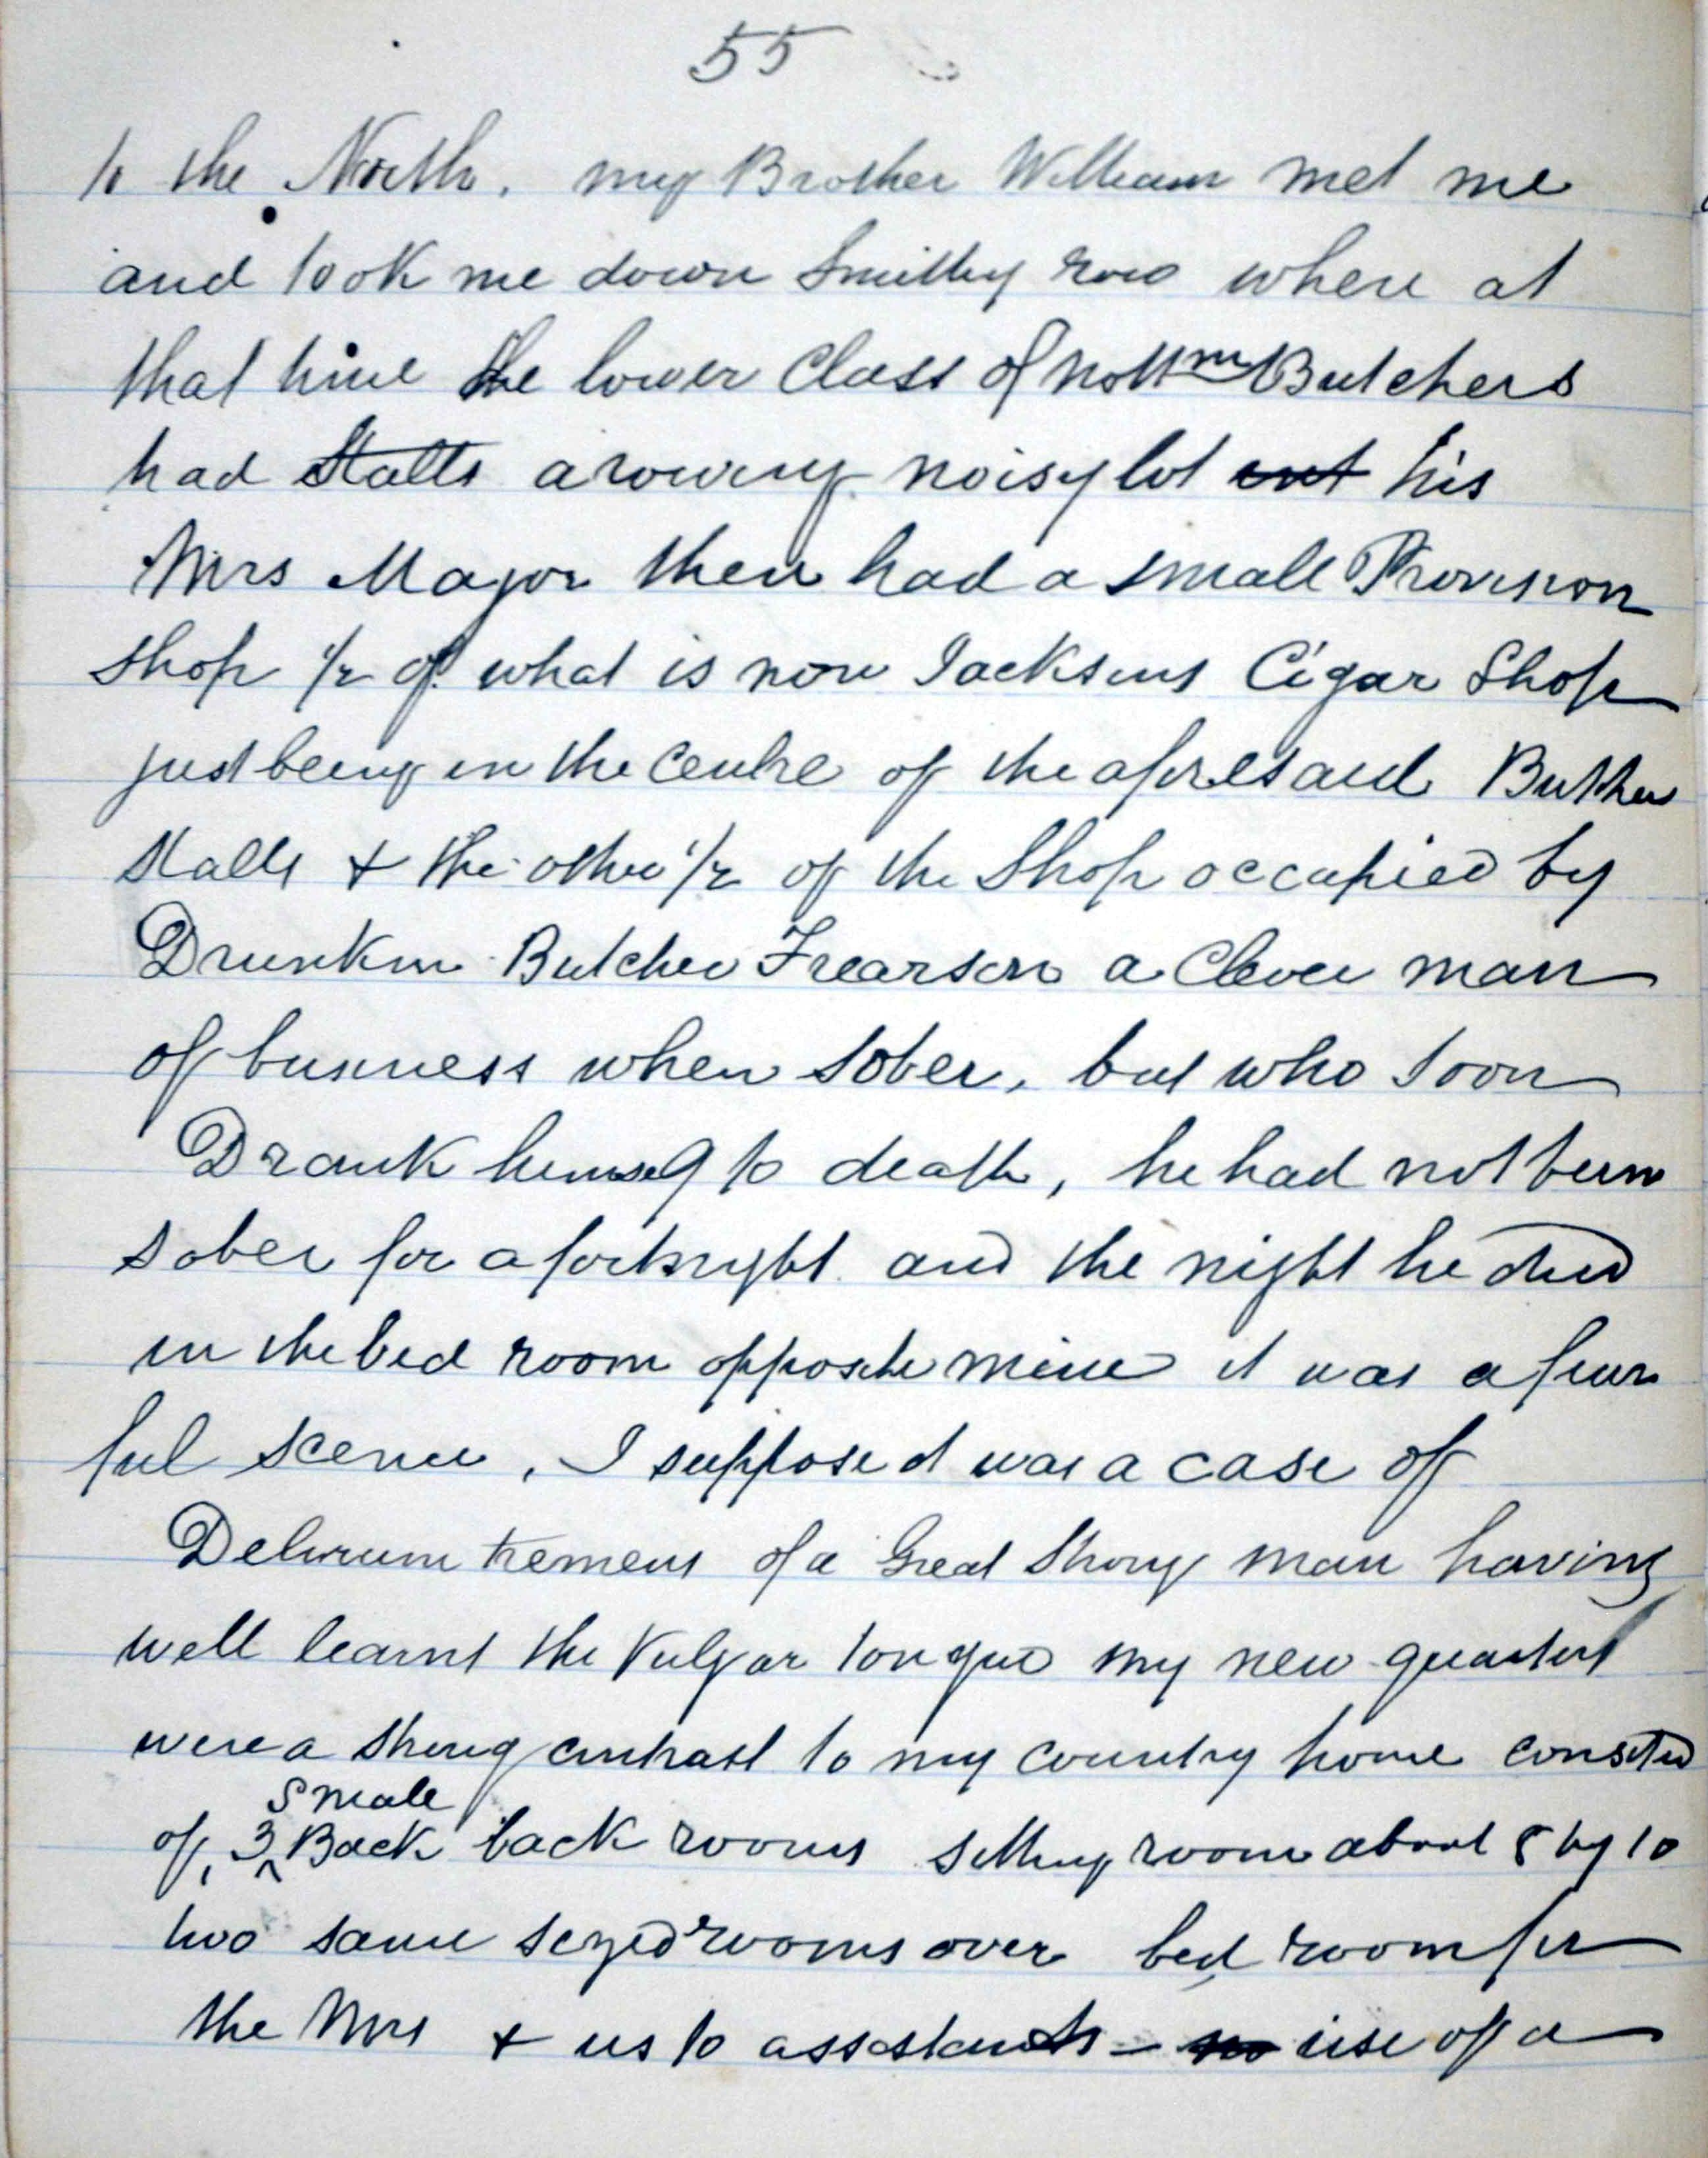 55
to the North. my Brother William met me
and took me down Smithy row where at
that time the lower Class of Nottm Butchers
had Stalls a rowing noisy lot out his
Mrs Major then had a small Provision
shop 1/2 of what is now Jacksons Cigar Shop
just being in the centre of the aforesaid Butchers
stalls + the other 1/2 of the Shop occupied by
Drunken Butcher Frearson a Clever man
of business when sober, but who soon
Drank himself to death, he had not been
sober for a fortnight and the night he died
in the bed room opposite mine it was a fear
ful scene, I suppose it was a case of
Delirium tremens of a Great Strong man having
well learnt the Vulgar tongue my new quarters
were a strong contrast to my country home consisted
of, 3 small Back back rooms sitting room about 8 by 10
two same sized rooms over bed room for
the Mrs + us to assistants - no use of a